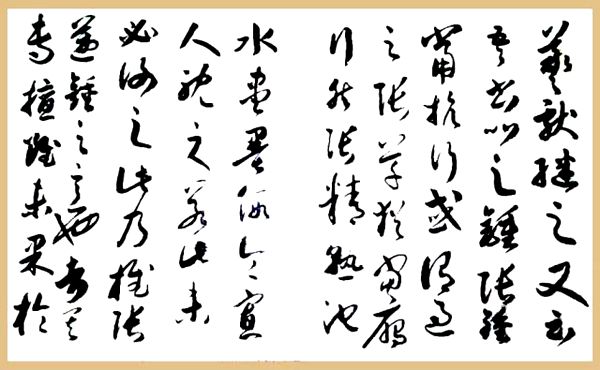 羲獻繼之又云
吾書比之鍾張鍾
當抗行或謂過
之張草猶當雁
行然張精熟池
水盡墨假令寡
人耽之若此未
必謝之此乃推張
邁鍾之意也考其
專擅雖未果於